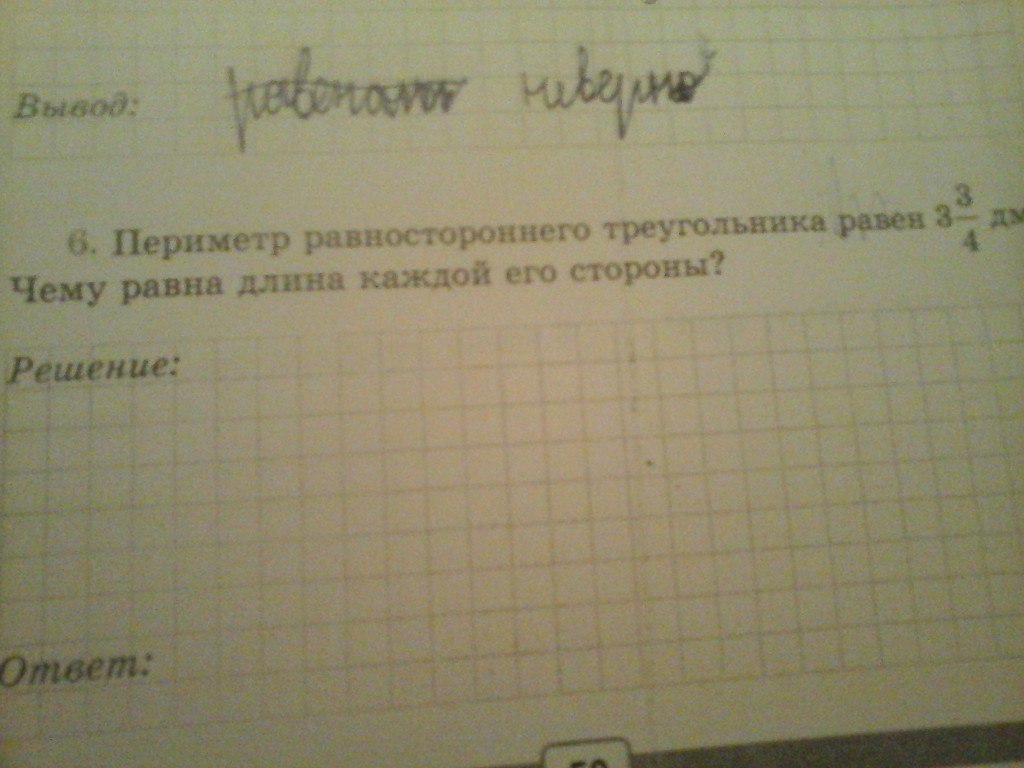 Вывод: неверно
6. Периметр равностороннего треугольника равен 3 3/4 дм
Чему равна длина каждой его стороны?
Решение:
Ответ: